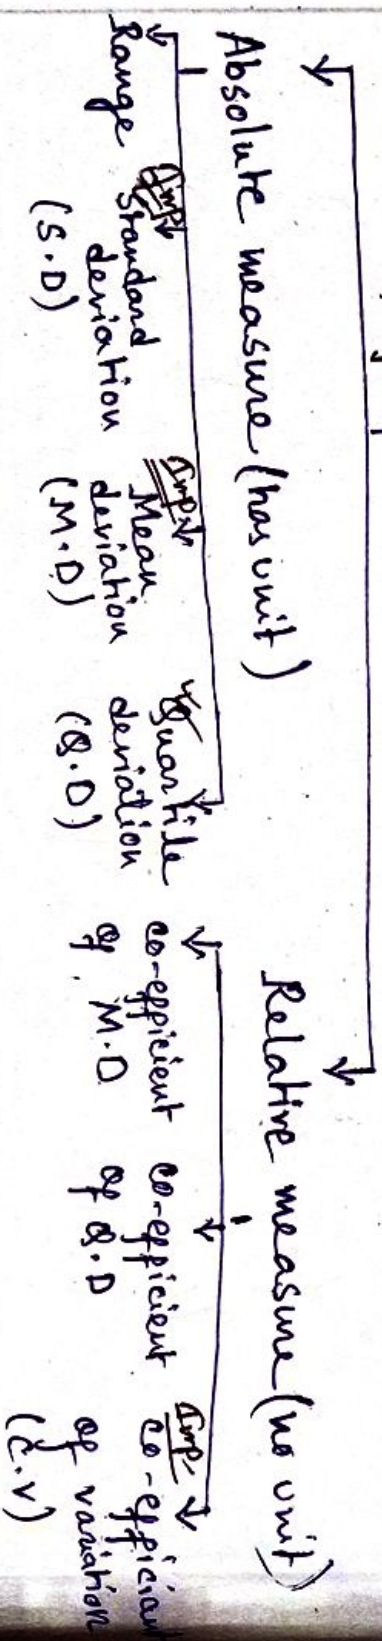 Absolute measure (has unit)
Relative measure (no unit)
Range
Imp
Standard
deviation
(S.D)
Imp
Mean
deviation
(M.D)
Quartile
deviation
(Q.D)
co-efficient
of M.D
co-efficient
of Q.D
Imp
co-efficient
of variation
(C.V)